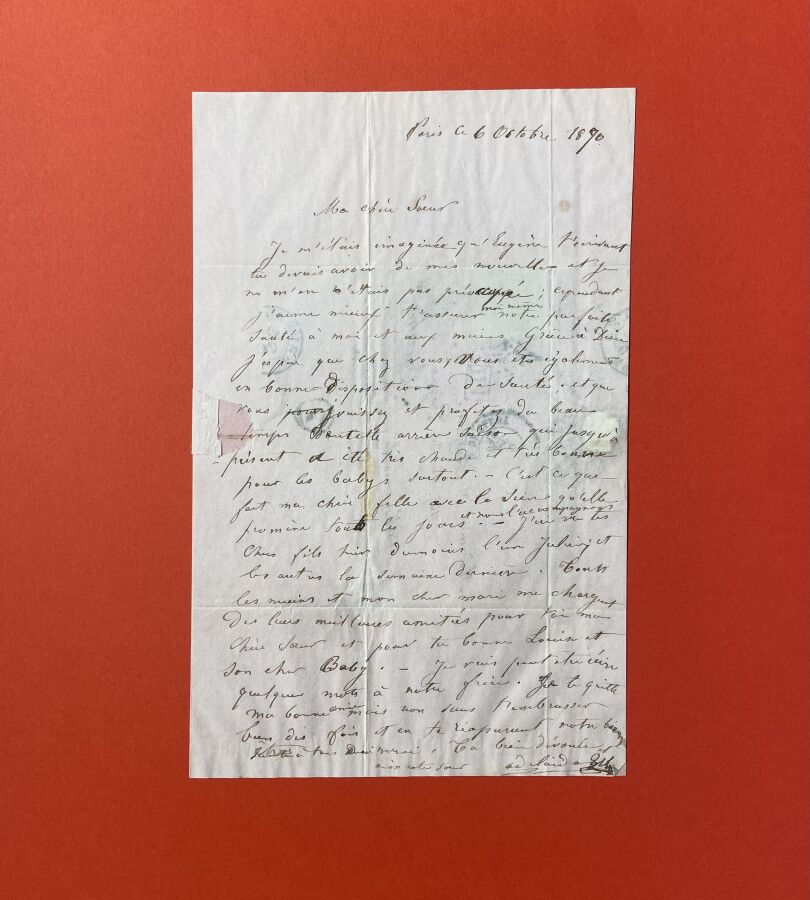 Paris ce 6 Octobre 1870.
Ma chère Soeur
Je m'étais imaginée qu'Eugène t'écrivant
tu devais avoir de mes nouvelles et je
ne m'en étais pas préoccupée ; cependant
j'aime mieux t'assurer moi même notre parfaite
Santé à moi et aux miens Grâce à Dieu
J'espère que chez vous, vous êtes également
en bonnes dispositions de Santé, et que
vous jouissez et profitez du beau
temps de cette arrière Saison qui jusqu'à
présent a été très chaude et très bonne
pour les babys surtout. – C'est ce que
fait ma chère fille avec le Sien qu'elle
promène tous les jours et nous l'accompagnons. – J'ai vu tes
chers fils hier du moins l'un Julien, et
les autres la semaine dernière. Tous
les miens et mon cher mari me chargent
des leurs meilleures amitiés pour toi ma
chère Soeur et pour ta bonne Louise et
son cher Baby. – Je vais peut être écrire
quelques mots à notre frère. Je te quitte
ma bonne amie mais non sans t'embrasser
bien des fois et en te réassurant notre
à tous Ta bien dévouée et
aimante soeur